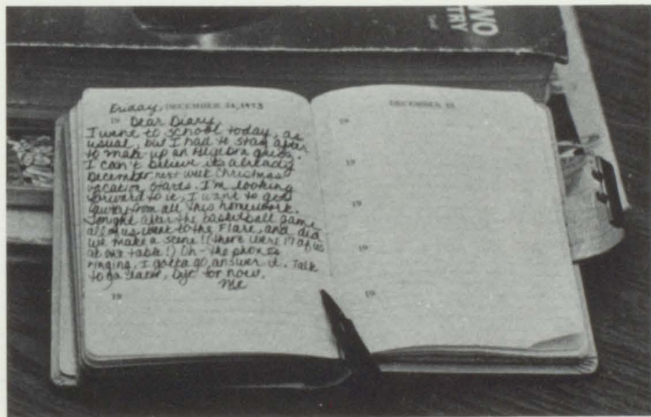 WO
TRY
Friday, DECEMBER 14, 1973
19 Dear Diary,
I went to school today, as
usual, but I had to stay after
to make-up an Algebra quiz.
I can't believe its already
December. next week Christmas
vacation starts. I'm looking
forward to it, I want to get
away from all this homework.
Tonight after the basketball game
all of us went to the Flare, and did
we make a scene!! (there were 17 of us
at one table!) Oh- the phone is
ringing, I gotta go answer it. Talk
to ya later, bye for now.
Me
19
DECEMBER 15
19
19
19
19
19